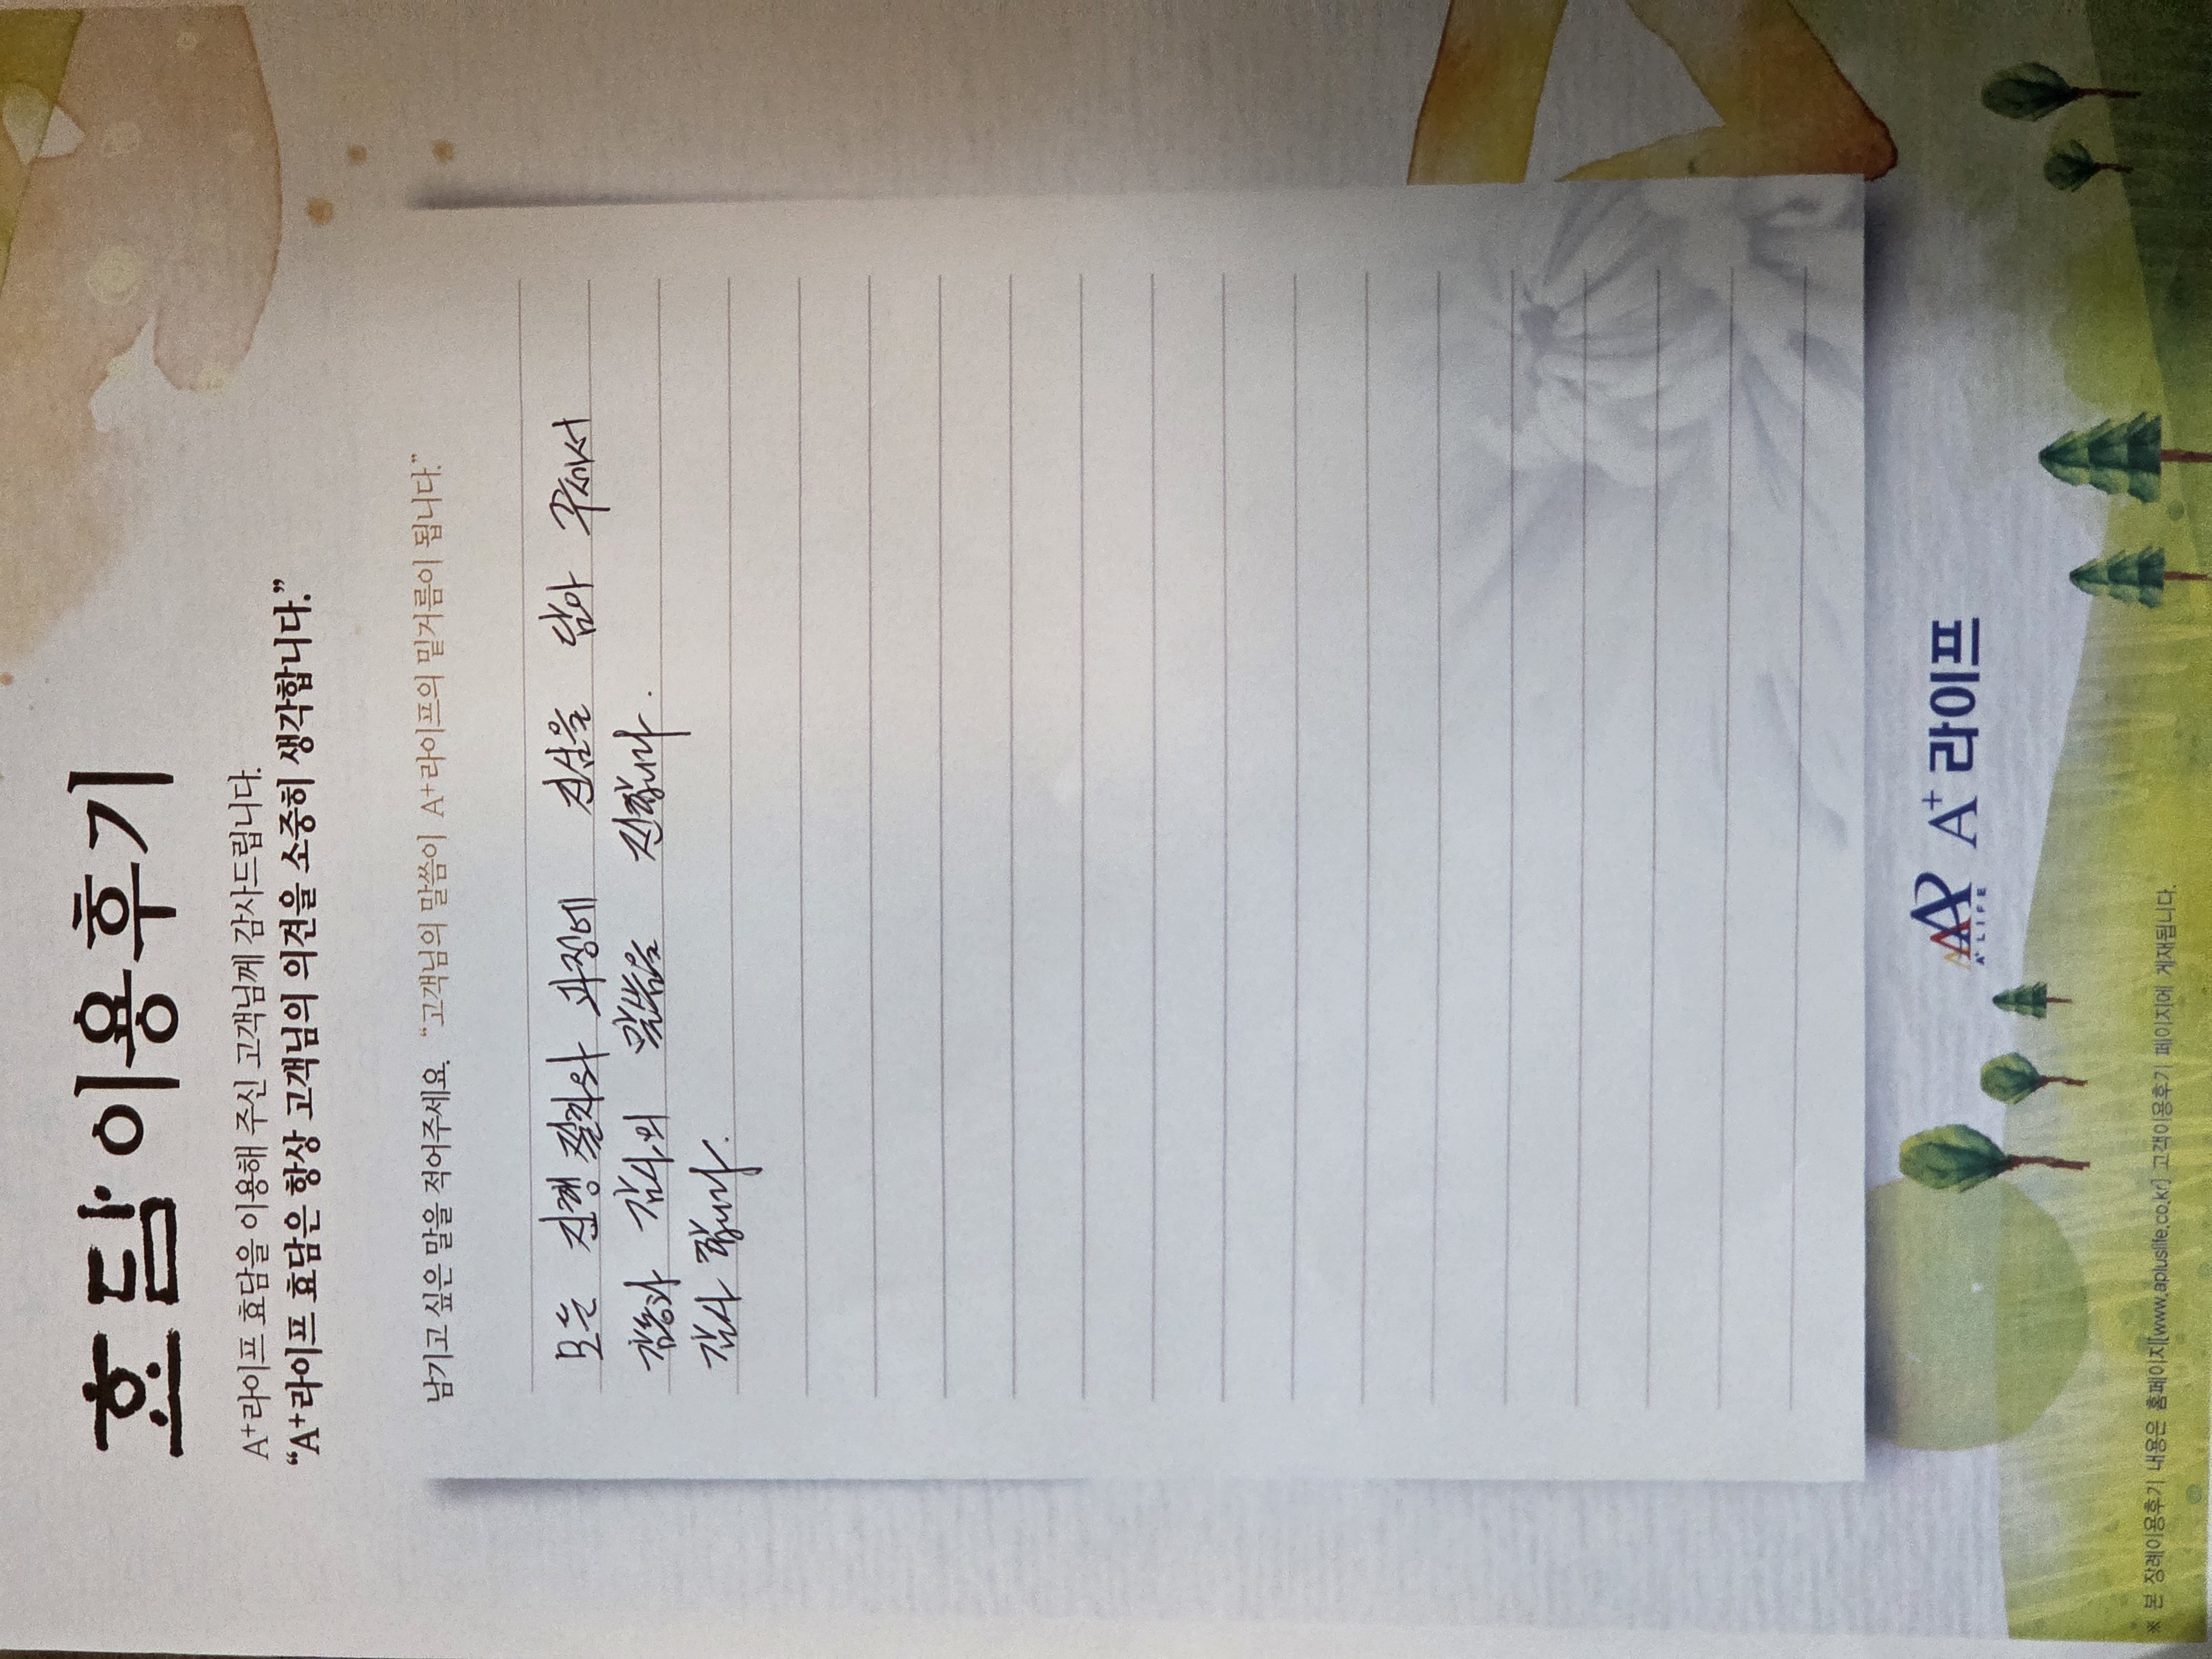 효담 이용후기
A⁺라이프 효담을 이용해 주신 고객님께 감사드립니다.
“A⁺라이프 효담은 항상 고객님의 의견을 소중히 생각합니다.”
남기고 싶은 말을 적어주세요. “고객님의 말씀이 A⁺라이프의 밑거름이 됩니다.”
모든 진행 절차와 과정에 진심을 담아 주셔서
감동과 감사의 말씀을 전합니다.
감사 합니다.
A⁺ LIFE A⁺ 라이프
※ 본 장례이용후기 내용은 홈페이지[www.apluslife.co.kr] 고객이용후기 페이지에 게재됩니다.